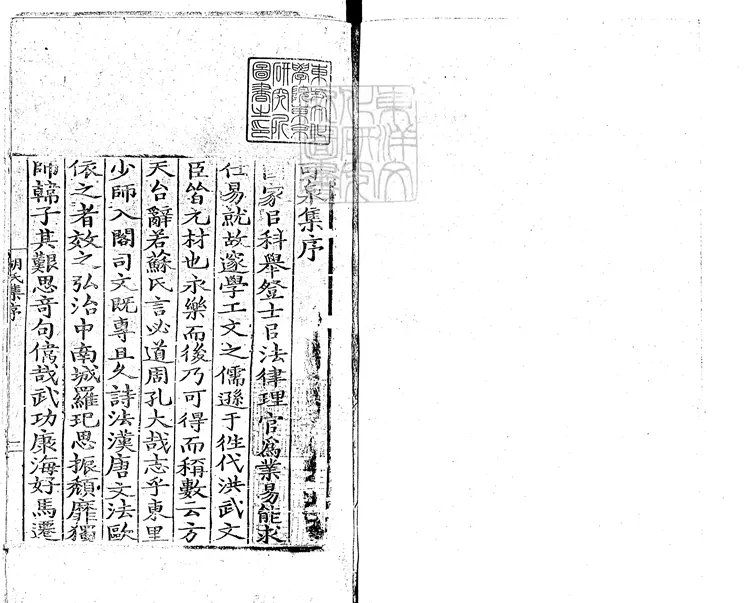 可泉集序
國家㠯科舉登士㠯法律理官爲業易能求
仕易就故邃學工文之儒遜于徃代洪武文
臣皆元材也永樂而後乃可得而稱數云方
天台辭若蘇氏言必道周孔大哉志乎東里
少師入閣司文既專且久詩法漢唐文法歐
依之者效之弘治中南城羅玘思振頽靡獨
師韓子其艱思奇句偉哉武功康海好馬遷
胡氏集序
一
東方文化
學院東京
研究所
圖書之印
東洋文
化研究
所圖書